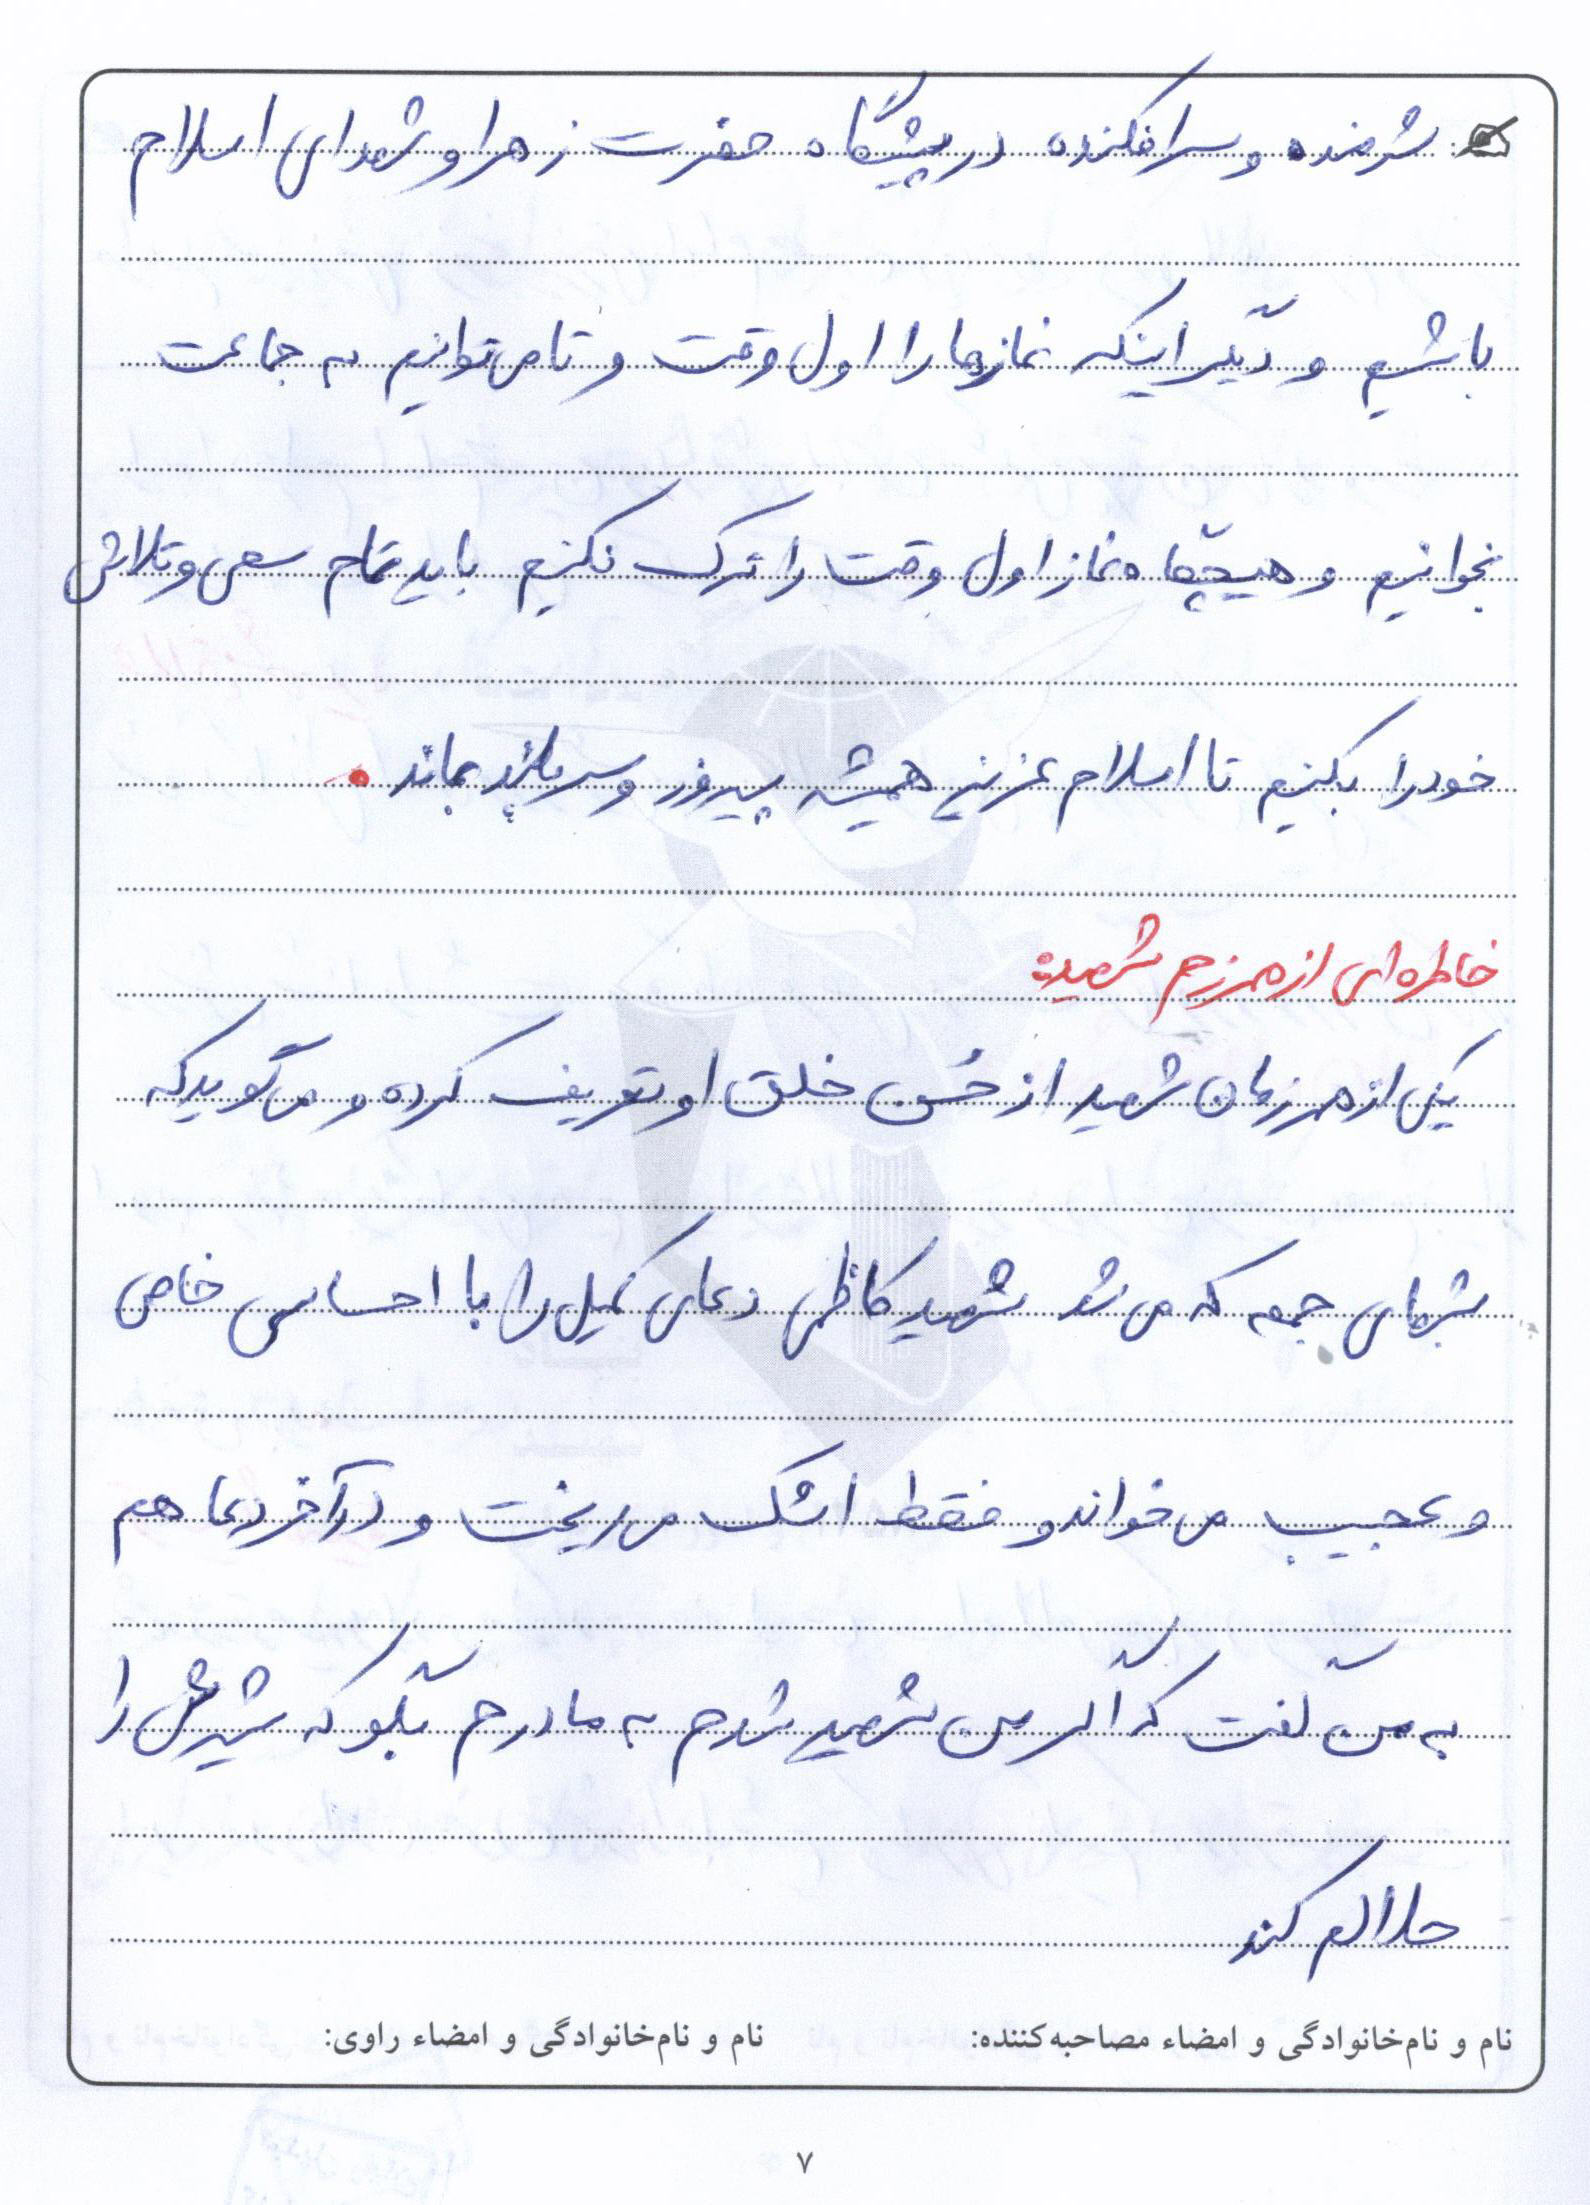 شرمنده و سرافکنده در پیشگاه حضرت زهرا و شهدای اسلام
باشیم و دیگر اینکه نمازها را اول وقت و تا می توانیم به جماعت
بخوانیم و هیچگاه نماز اول وقت را ترک نکنیم باید تمام سعی و تلاش
خود را بکنیم تا اسلام عزیز همیشه پیروز و سربلند بماند.
خاطره ای از همرزم شهید:
یکی از همرزمان شهید از حُسن خلق او تعریف کرده و می گوید که
شبهای جمعه که می شد شهید کاظمی دعای کمیل را با احساسی خاص
و عجیب می خواند و فقط اشک می ریخت و در آخر دعا هم
به من گفت که اگر من شهید شدم به مادرم بگو که شیرش را
حلالم کند
نام و نام‌خانوادگی و امضاء مصاحبه‌کننده: نام و نام‌خانوادگی و امضاء راوی:
۷